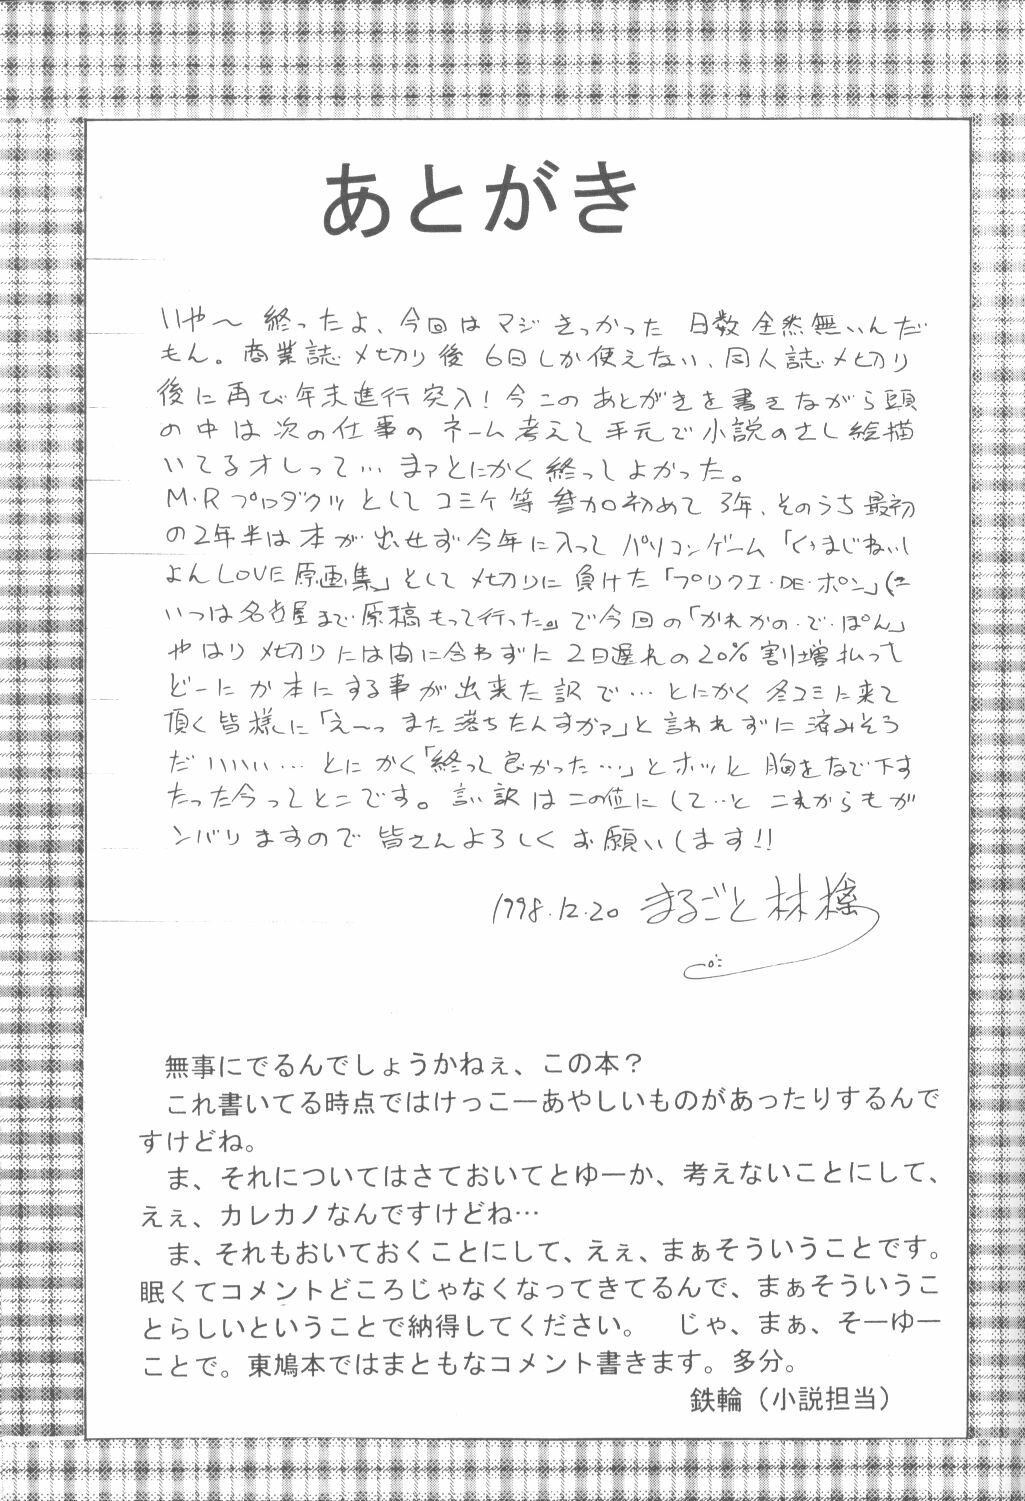 あとがき
いや〜 終ったよ、今回は マジ きつかった 日数 全然無いんだ
もん。商業誌〆切り後 6日しか使えない、同人誌〆切り
後に再び年末進行突入！今このあとがきを書きながら頭
の中は次の仕事のネーム考えて手元で小説のさし絵描
いてるオレって… まァとにかく終ってよかった。
M・Rプロダクツとしてコミケ等参加初めて3年、そのうち最初
の2年半は本が出せず今年に入ってパソコンゲーム「くうまじねいし
よんLOVE原画集」として〆切りに負けた「プリクエ・DE・ポン」(こ
いつは名古屋まで原稿もって行った。)で今回の「かれかの・で・ぽん」
やはり〆切りには間に合わずに2日遅れの20%割増払って
どーにか本にする事が出来た訳で… とにかく冬コミに来て
頂く皆様に「え〜っまた落ちたんすかァ」と言われずに済みそう
だいいいい… とにかく「終って良かった…」とホッと胸をなで下す
たった今ってとこです。言い訳はこの位にして…と これからもが
ンバリますので皆さんよろしくお願いします!!
1998.12.20 まるごと林檎
無事にでるんでしょうかねぇ、この本？
これ書いてる時点ではけっこーあやしいものがあったりするんで
すけどね。
ま、それについてはさておいてとゆーか、考えないことにして、
えぇ、カレカノなんですけどね…
ま、それもおいておくことにして、えぇ、まぁそういうことです。
眠くてコメントどころじゃなくなってきてるんで、まぁそういうこ
とらしいということで納得してください。　じゃ、まぁ、そーゆー
ことで。東鳩本ではまともなコメント書きます。多分。
鉄輪（小説担当）